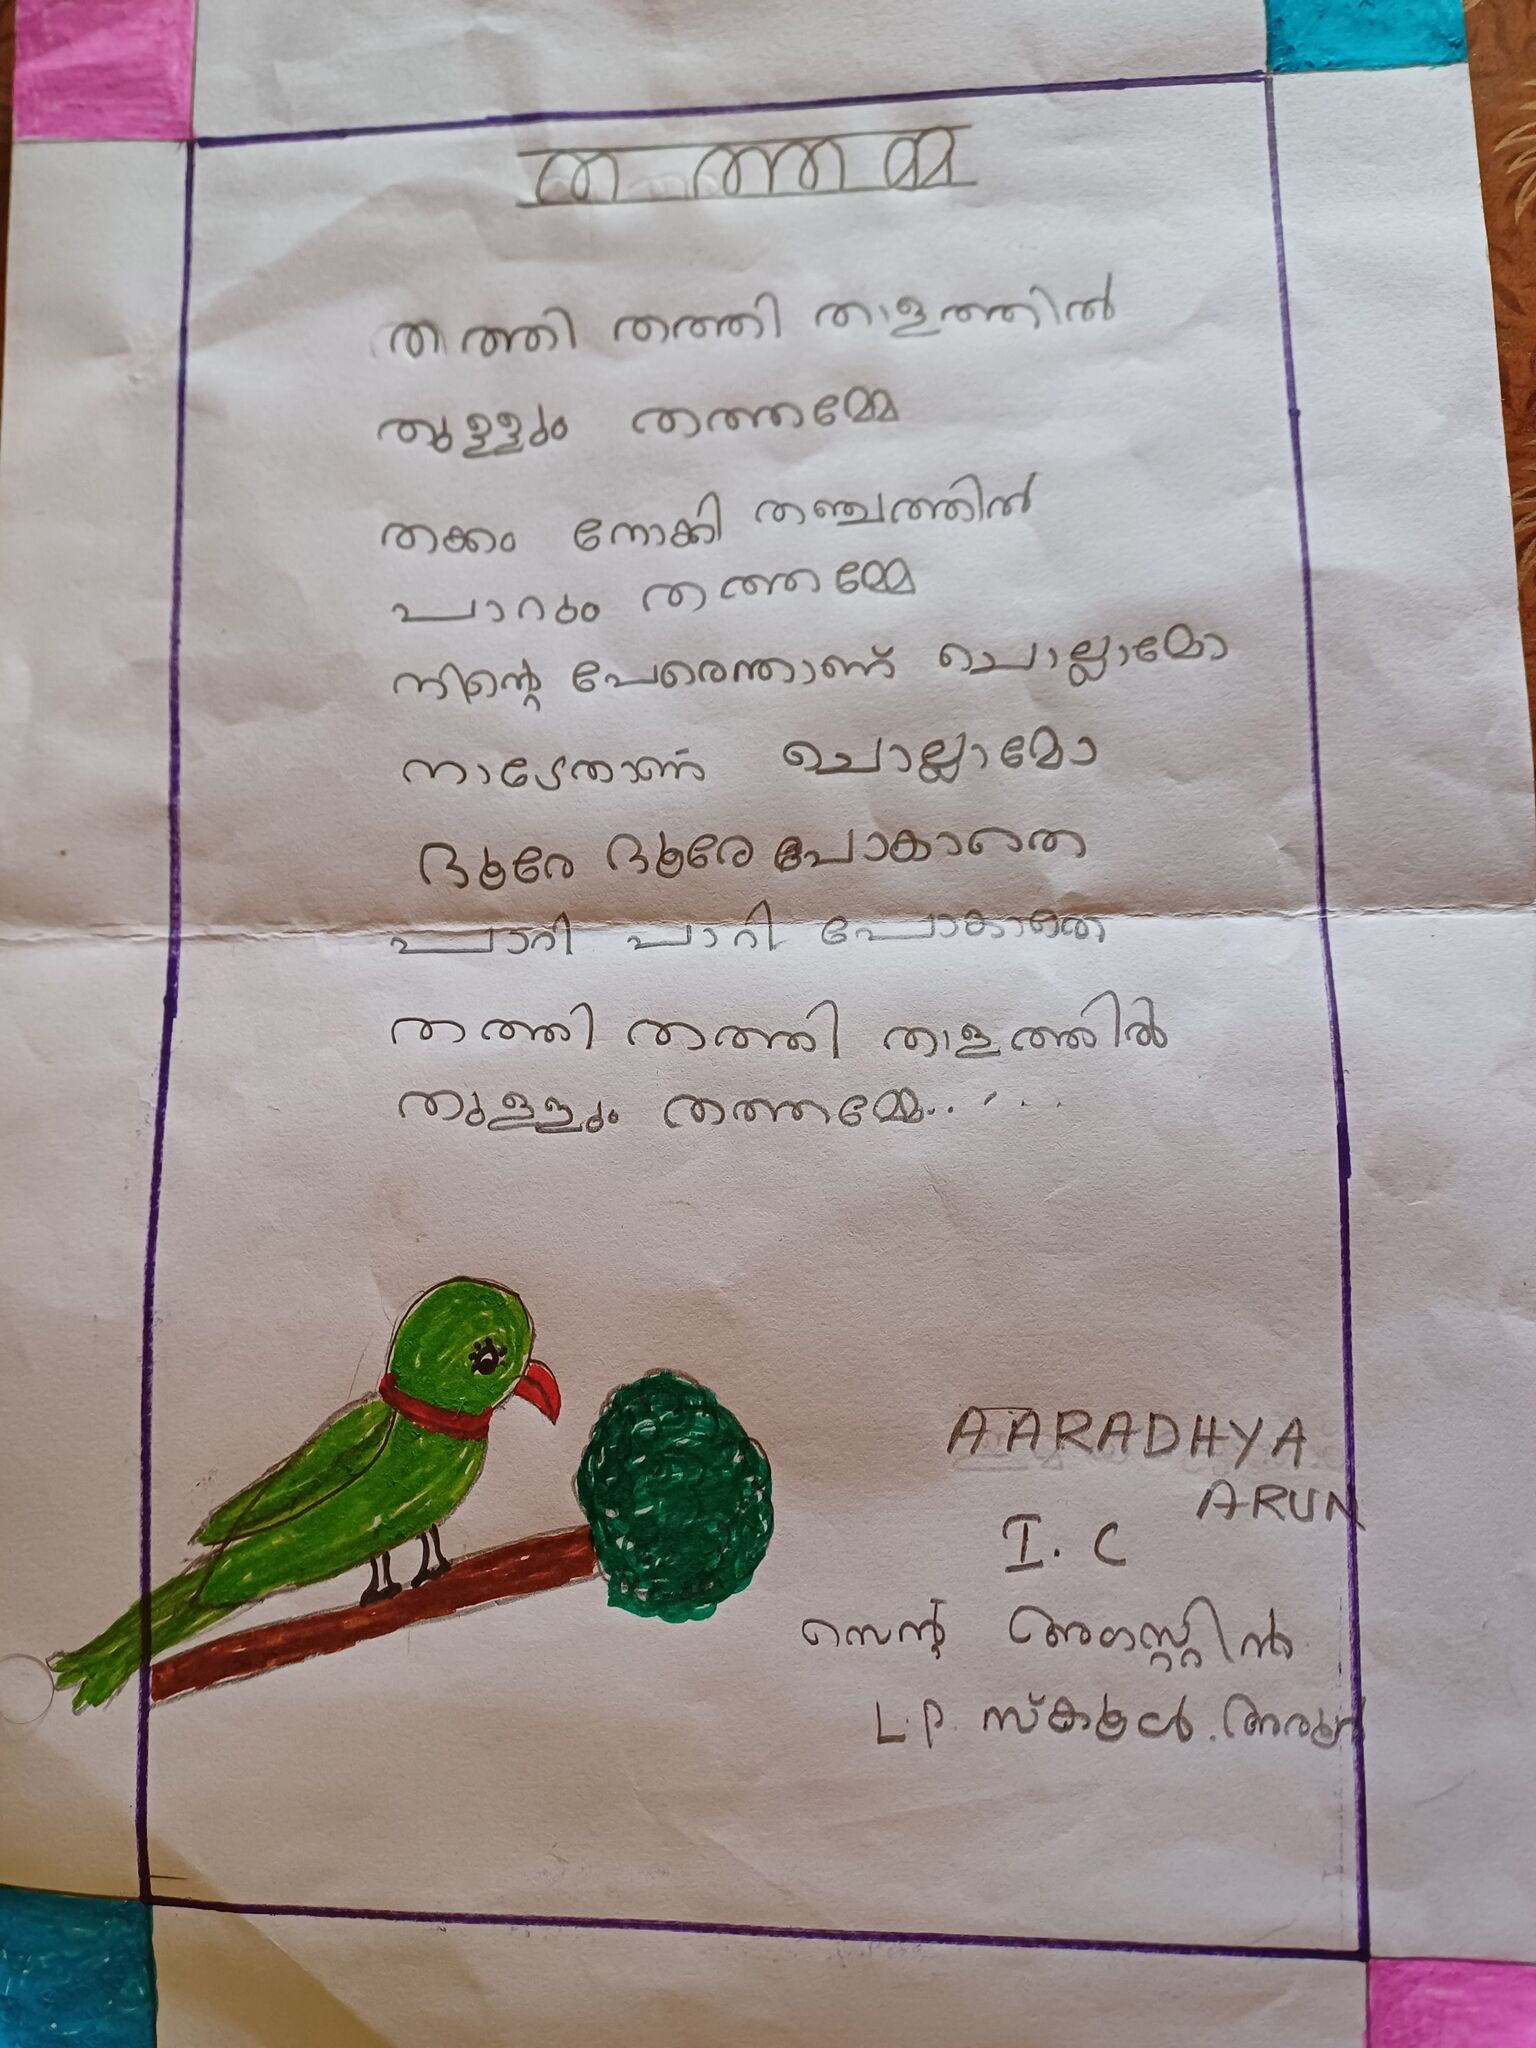 തത്തമ്മ
തത്തി തത്തി താളത്തിൽ
തുള്ളും തത്തമ്മേ
തക്കം നോക്കി തഞ്ചത്തിൽ
പാറും തത്തമ്മേ
നിന്റെ പേരെന്താണ് ചൊല്ലാമോ
നാടേതാണ് ചൊല്ലാമോ
ദൂരേ ദൂരേ പോകാതെ
പാറി പാറി പോകാതെ
തത്തി തത്തി താളത്തിൽ
തുള്ളും തത്തമ്മേ......
AARADHYA
ARUN
I. C
സെന്റ് അഗസ്റ്റിൻ
L.P. സ്കൂൾ.